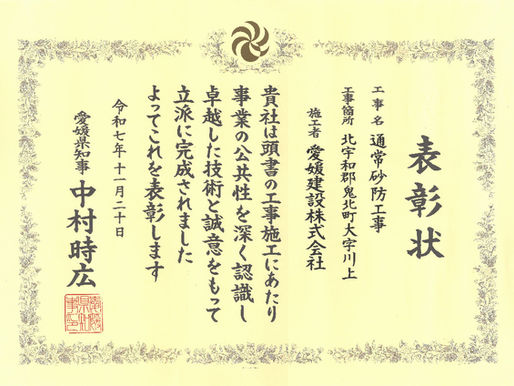 表彰状
工事名 通常砂防工事
工事箇所 北宇和郡鬼北町大字川上
施工者 愛媛建設株式会社
貴社は頭書の工事施工にあたり
事業の公共性を深く認識し
卓越した技術と誠意をもって
立派に完成されました
よってこれを表彰します
令和七年十一月二十日
愛媛県知事 中村時広